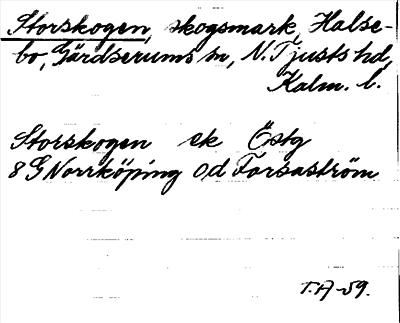 Storskogen, skogsmark, Halse-
bo, Gärdserums sn, N. Tjusts hd,
Kalm. l.
Storskogen sk Östg
8 G Norrköping 0d Forsaström
T.A -59.